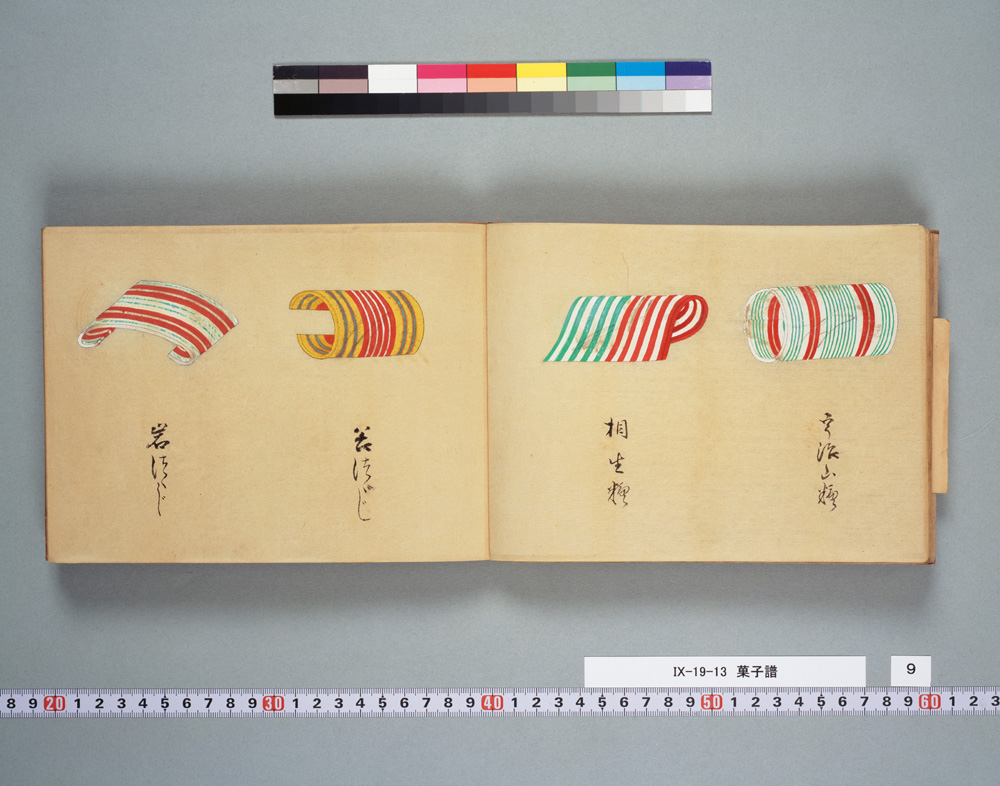 宇治山糖
相生糖
岩つゝじ
IX-19-13 菓子譜
9
8 9 20 1 2 3 4 5 6 7 8 9 30 1 2 3 4 5 6 7 8 9 40 1 2 3 4 5 6 7 8 9 50 1 2 3 4 5 6 7 8 9 60 1 2 3